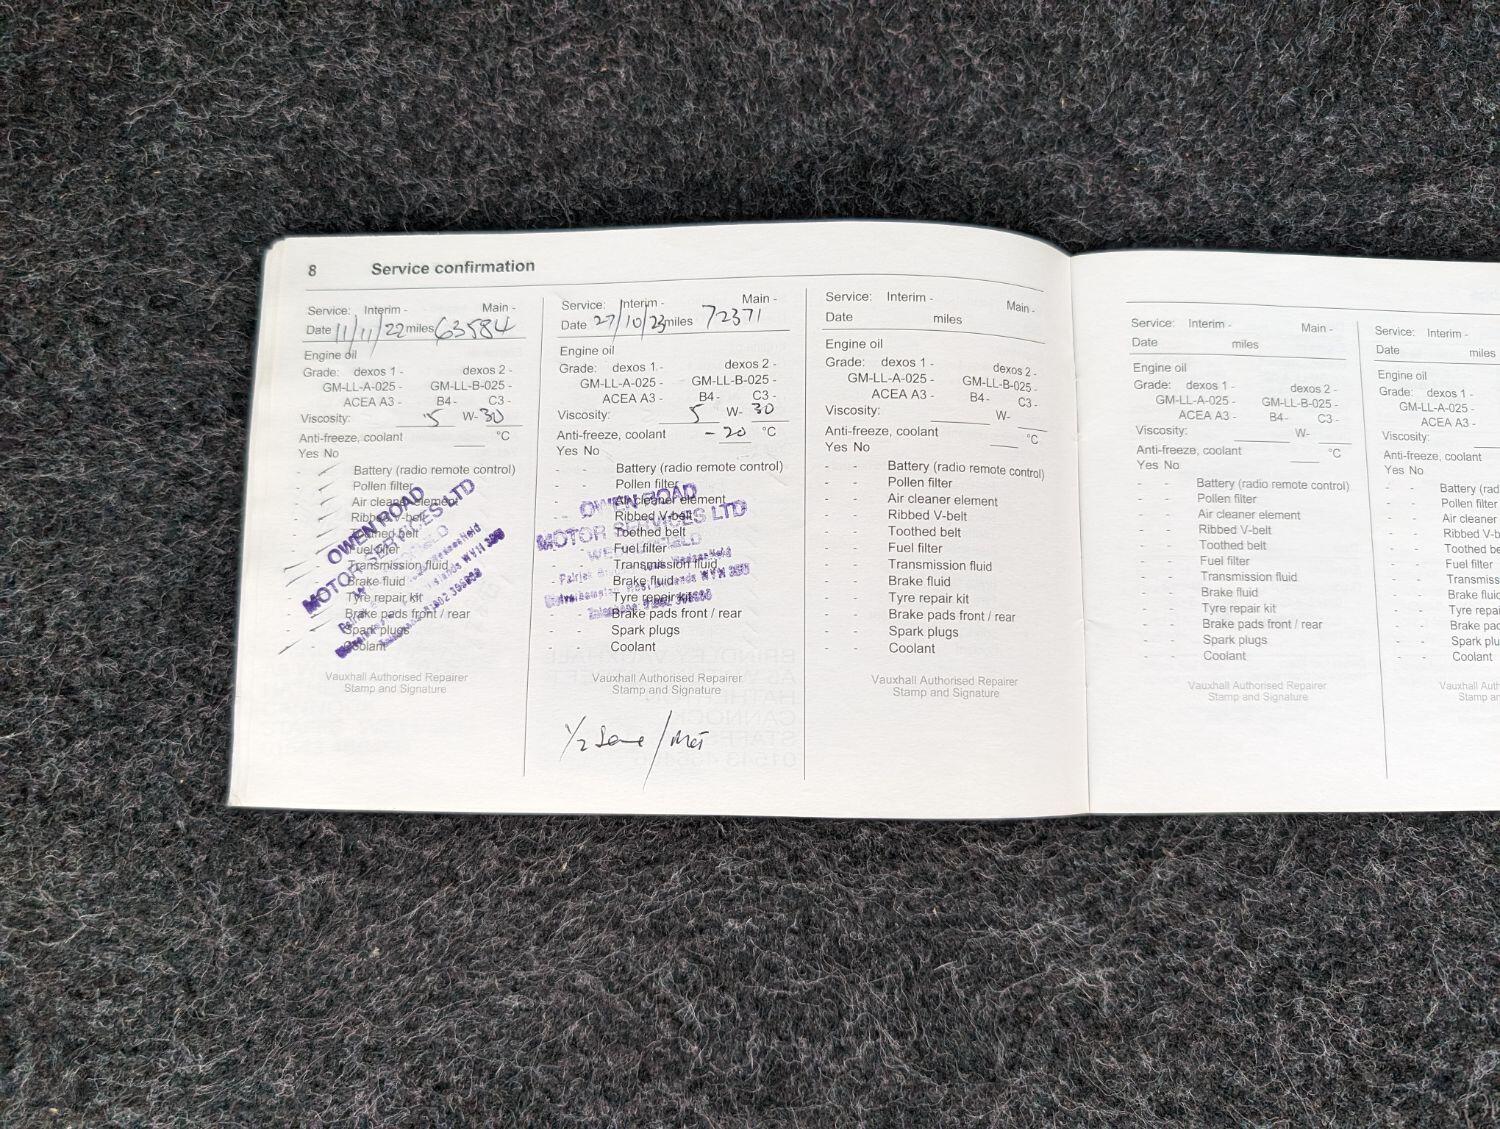 8 Service confirmation
Service: Interim - Main -
Date 11/11/22 miles 63584
Engine oil
Grade: dexos 1 - dexos 2 -
GM-LL-A-025 - GM-LL-B-025 -
ACEA A3 - B4 - C3 -
Viscosity: 5 W- 30
Anti-freeze, coolant °C
Yes No
- Battery (radio remote control)
Pollen filter
Air cleaner element
Ribbed V-belt
Toothed belt
Fuel filter
Transmission fluid
Brake fluid
Tyre repair kit
Brake pads front / rear
Spark plugs
Coolant
OWEN ROAD
MOTOR SERVICES LTD
Vauxhall Authorised Repairer
Stamp and Signature
Service: Interim - Main -
Date 27/10/23 miles 72371
Engine oil
Grade: dexos 1 - dexos 2 -
GM-LL-A-025 - GM-LL-B-025 -
ACEA A3 - B4 - C3 -
Viscosity: 5 W- 30
Anti-freeze, coolant -20 °C
Yes No
- - Battery (radio remote control)
- - Pollen filter
Air cleaner element
Ribbed V-belt
Toothed belt
Fuel filter
Transmission fluid
Brake fluid
Tyre repair kit
Brake pads front / rear
- - Spark plugs
- - Coolant
OWEN ROAD
MOTOR SERVICES LTD
Vauxhall Authorised Repairer
Stamp and Signature
1/2
Service: Interim - Main -
Date miles
Engine oil
Grade: dexos 1 - dexos 2 -
GM-LL-A-025 - GM-LL-B-025 -
ACEA A3 - B4 - C3 -
Viscosity: W-
Anti-freeze, coolant °C
Yes No
- - Battery (radio remote control)
- - Pollen filter
- - Air cleaner element
- - Ribbed V-belt
- - Toothed belt
- - Fuel filter
- - Transmission fluid
- - Brake fluid
- - Tyre repair kit
- - Brake pads front / rear
- - Spark plugs
- - Coolant
Vauxhall Authorised Repairer
Stamp and Signature
Service: Interim - Main -
Date miles
Engine oil
Grade: dexos 1 - dexos 2 -
GM-LL-A-025 - GM-LL-B-025 -
ACEA A3 - B4 - C3 -
Viscosity: W-
Anti-freeze, coolant °C
Yes No
- - Battery (radio remote control)
- - Pollen filter
- - Air cleaner element
- - Ribbed V-belt
- - Toothed belt
- - Fuel filter
- - Transmission fluid
- - Brake fluid
- - Tyre repair kit
- - Brake pads front / rear
- - Spark plugs
- - Coolant
Vauxhall Authorised Repairer
Stamp and Signature
Service: Interim -
Date miles
Engine oil
Grade: dexos 1 -
GM-LL-A-025 -
ACEA A3 -
Viscosity:
Anti-freeze, coolant
Yes No
- - Battery (rad
- - Pollen filter
- - Air cleaner
- - Ribbed V-b
- - Toothed be
- - Fuel filter
- - Transmiss
- - Brake fluid
- - Tyre repai
- - Brake pad
- - Spark plu
- - Coolant
Vauxhall Auth
Stamp an